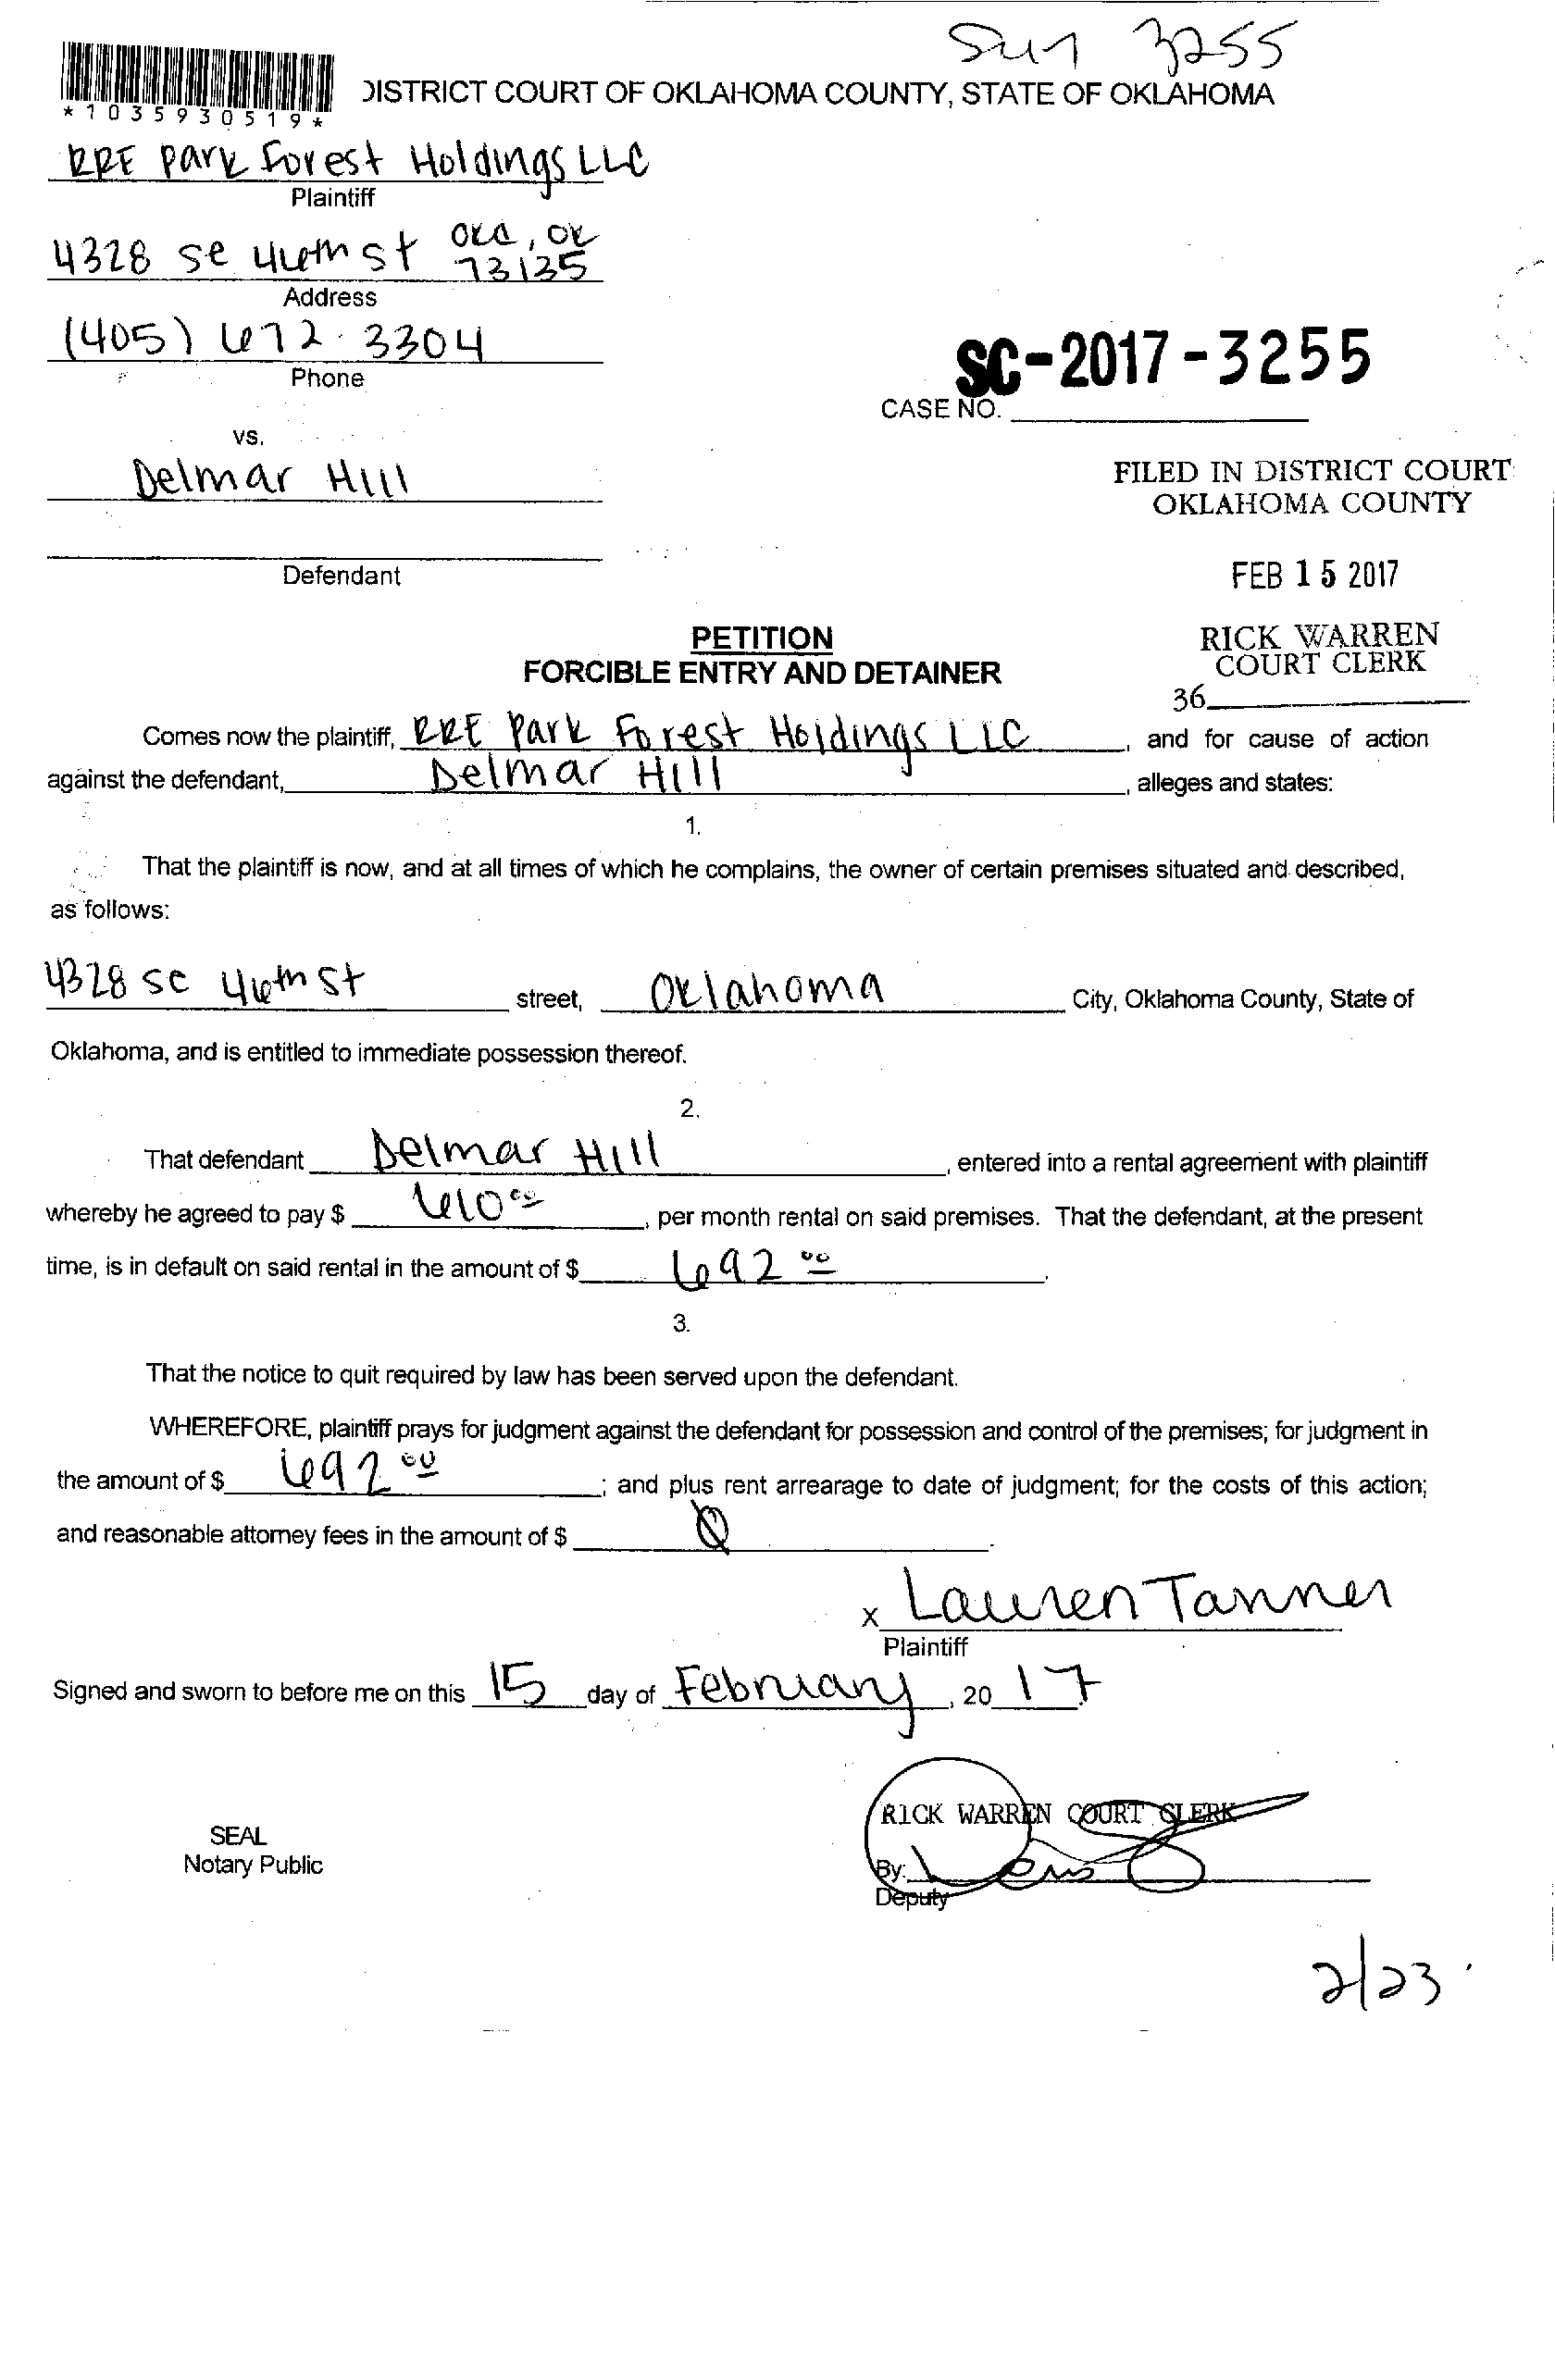 3255
*1035930519*
DISTRICT COURT OF OKLAHOMA COUNTY, STATE OF OKLAHOMA
RRE Park Forest Holdings LLC
Plaintiff
4328 se 46th st OKC, OK 73135
Address
(405) 672-3304
Phone
SC-2017-3255
CASE NO.
vs.
Delmar Hill
Defendant
FILED IN DISTRICT COURT
OKLAHOMA COUNTY
FEB 15 2017
RICK WARREN
COURT CLERK
36
PETITION
FORCIBLE ENTRY AND DETAINER
Comes now the plaintiff, RRE Park Forest Holdings LLC, and for cause of action
against the defendant, Delmar Hill, alleges and states:
1.
That the plaintiff is now, and at all times of which he complains, the owner of certain premises situated and described,
as follows:
4328 se 46th st street, Oklahoma City, Oklahoma County, State of
Oklahoma, and is entitled to immediate possession thereof.
2.
That defendant Delmar Hill, entered into a rental agreement with plaintiff
whereby he agreed to pay $ 610.00, per month rental on said premises. That the defendant, at the present
time, is in default on said rental in the amount of $ 692.00.
3.
That the notice to quit required by law has been served upon the defendant.
WHEREFORE, plaintiff prays for judgment against the defendant for possession and control of the premises; for judgment in
the amount of $ 692.00; and plus rent arrearage to date of judgment; for the costs of this action;
and reasonable attorney fees in the amount of $ 0.
x Lauren Tanner
Plaintiff
Signed and sworn to before me on this 15 day of February, 2017
RICK WARREN COURT CLERK
SEAL
Notary Public
By:
Deputy
2/23